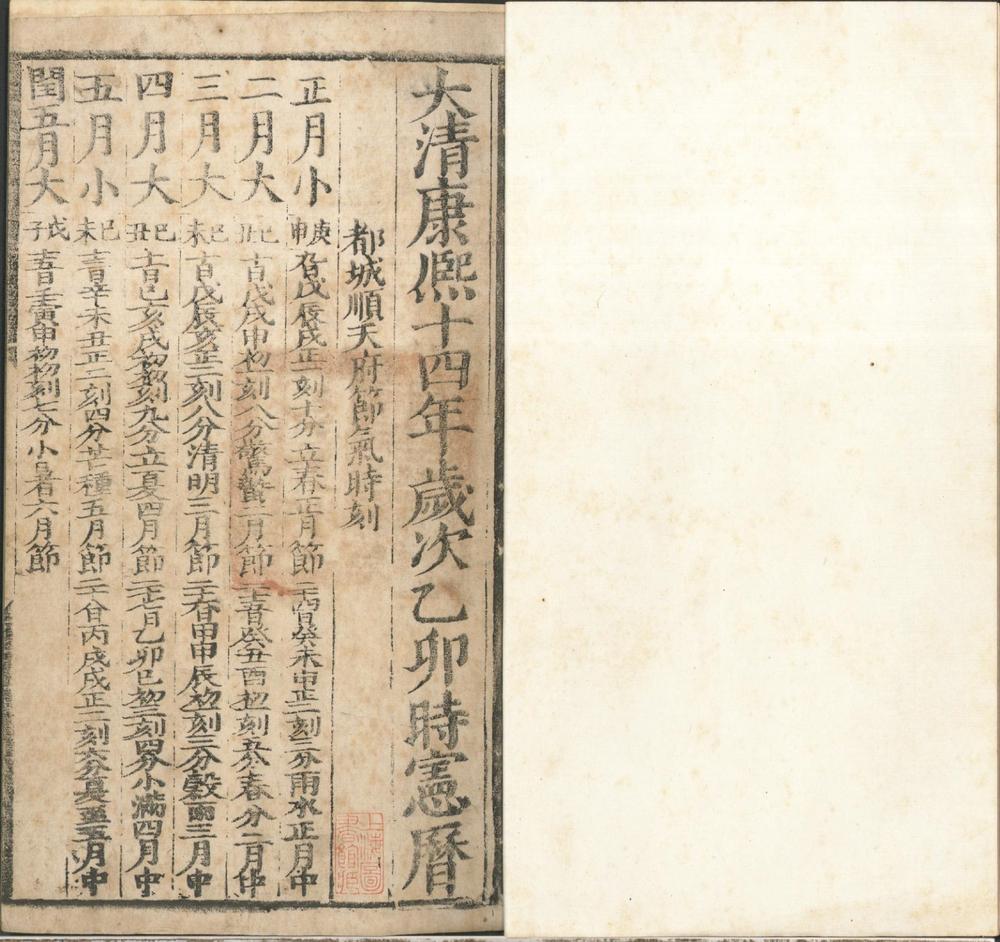 大清康熙十四年歲次乙卯時憲曆
都城順天府節氣時刻
正月小 庚申 九日戊辰戌正一刻十分立春正月節 二十四日癸未申正二刻三分雨水正月中
二月大 己丑 十日戊戌申初一刻八分驚蟄二月節 二十五日癸丑酉初一刻五分春分二月中
三月大 己未 十日戊辰亥正二刻八分清明三月節 二十六日甲申辰初一刻三分穀雨三月中
四月大 己丑 十一日己亥戌初初刻九分立夏四月節 二十七日乙卯巳初三刻四分小滿四月中
五月小 己未 十三日辛未丑正二刻四分芒種五月節 二十八日丙戌戌正二刻六分夏至五月中
閏五月大 戊子 十五日壬寅申初初刻七分小暑六月節
上海圖書館藏